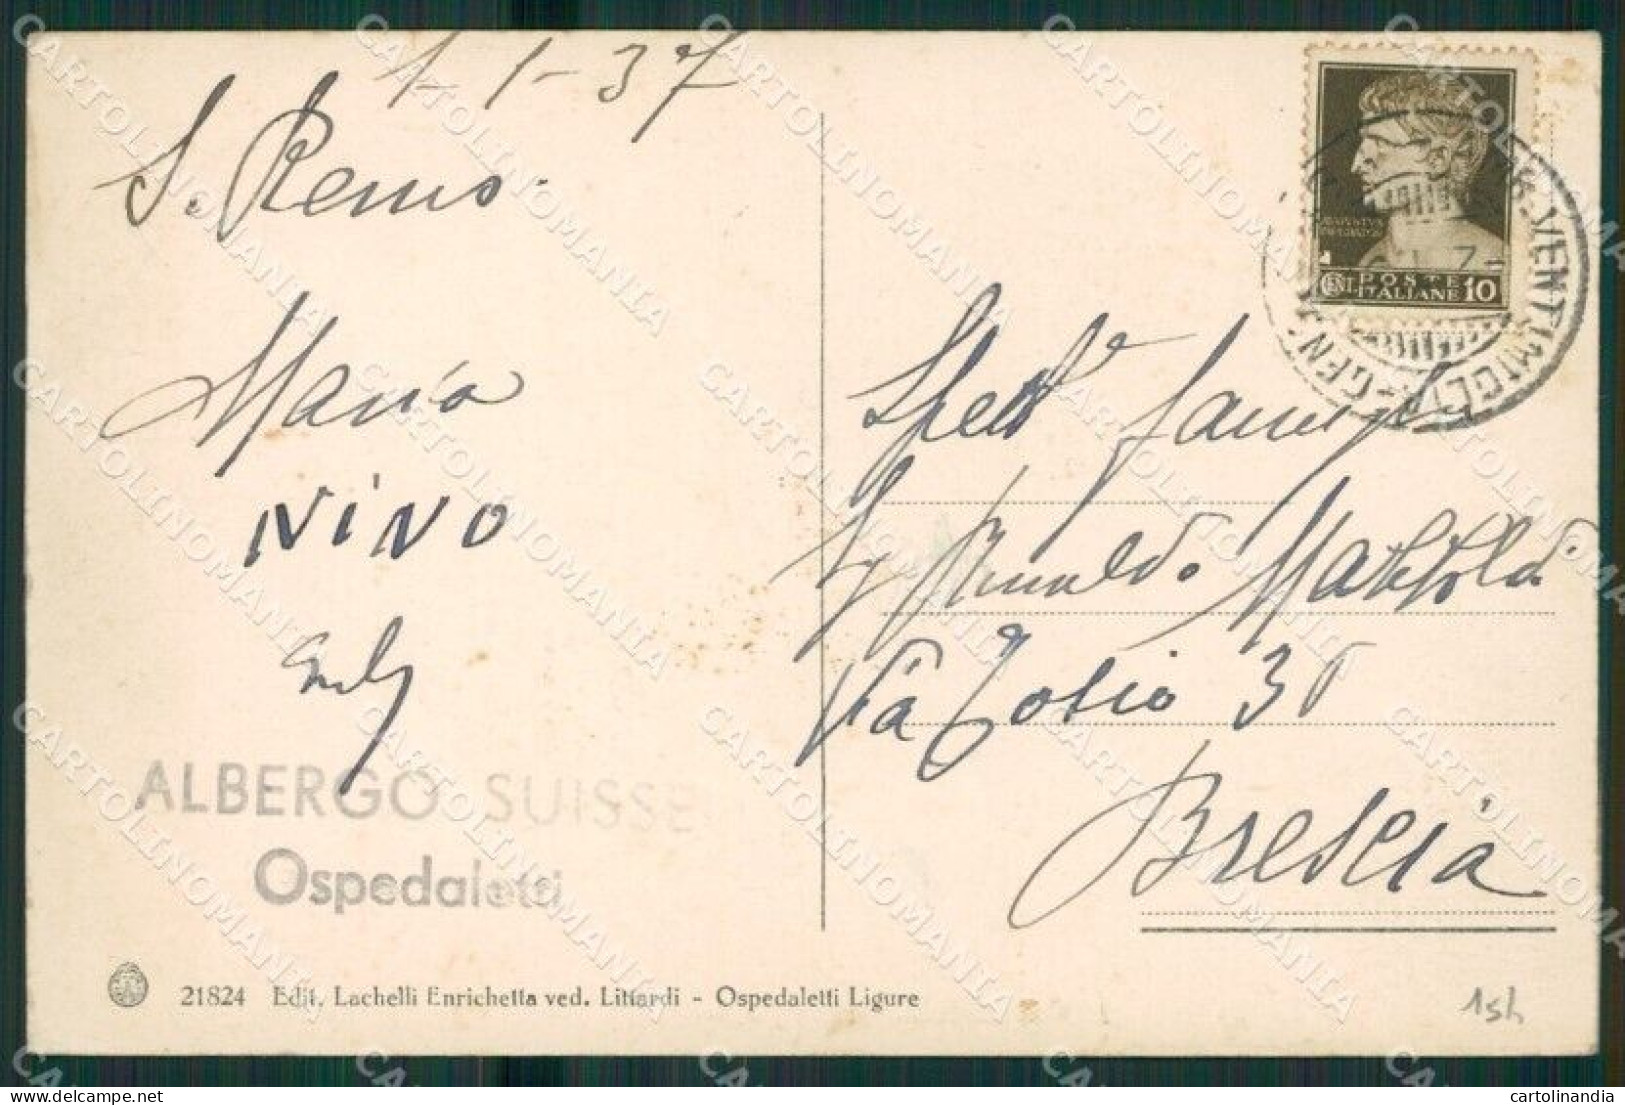 1-1-37
S. Remo.
Maria
NINO
ALBERGO SUISSE
Ospedaletti
21824 Edit. Lachelli Enrichetta ved. Littardi - Ospedaletti Ligure
POSTE
ITALIANE 10
VENTIMIGLIA-GEN
Spett
Via Tosio 30
Brescia
15h
CARTOLINOMANIA
cartolinandia